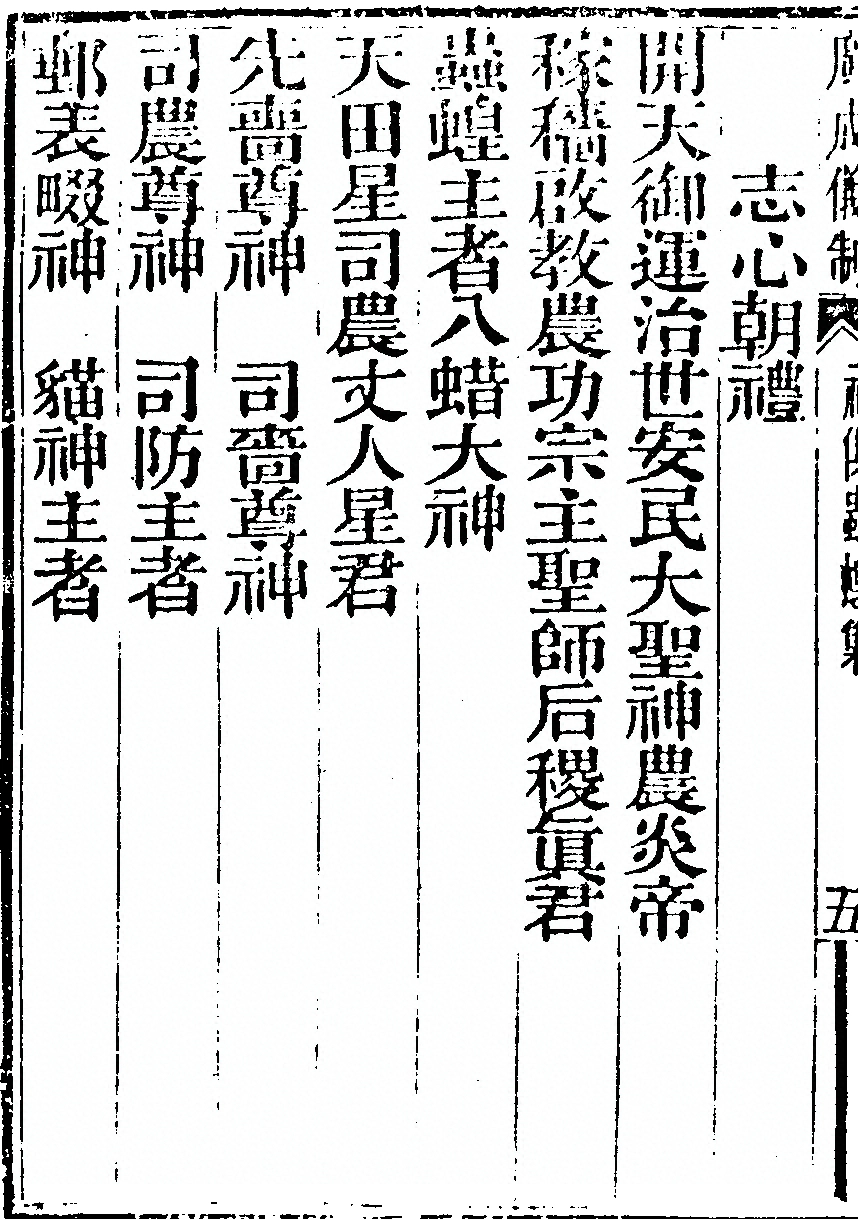 廣成儀制
五
志心朝禮
開天御運治世安民大聖神農炎帝
稼穡啟教農功宗主聖師后稷眞君
蟲蝗主者八蜡大神
天田星司農丈人星君
先嗇尊神　司嗇尊神
司農尊神　司防主者
郵表畷神　貓神主者